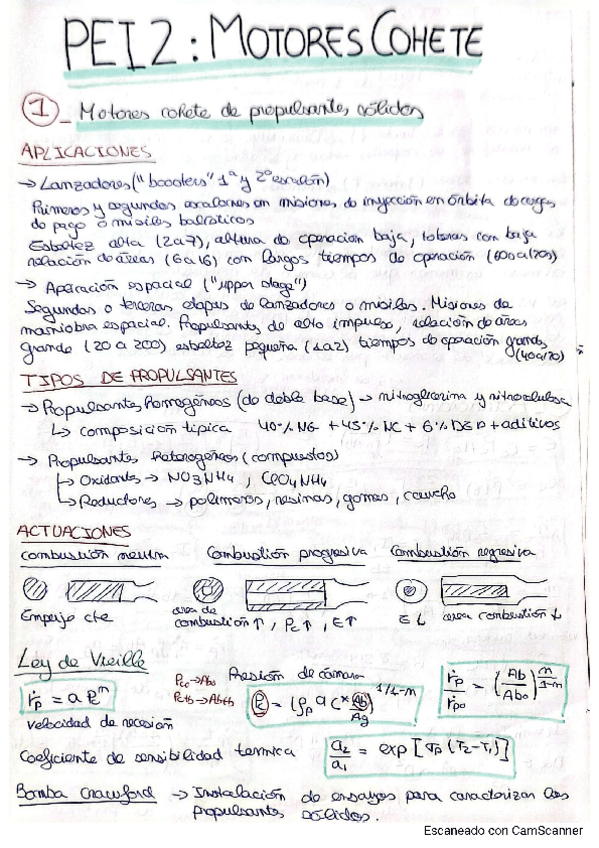 PEI 2: MOTORES COHETE
1_ Motores cohete de propulsantes sólidos
APLICACIONES
→ Lanzadores ("boosters" 1ª y 2º escalón)
Primeros y segundos escalones en misiones de inyección en órbita de cargas
de pago o misiles balísticos
Esbeltez alta (2 a 7), altura de operación baja, toberas con baja
relación de áreas (6 a 16) con largos tiempos de operación
→ Aplicación espacial ("upper stage")
Segundas o terceras etapas de lanzadores o misiles. Misiones de
maniobra espacial. Propulsantes de alto impulso, relación de áreas
grande (20 a 200) esbeltez pequeña (1 a 2) tiempos de operación grandes
(40 a 70)
TIPOS DE PROPULSANTES
→ Propulsantes homogéneos (de doble base) → nitroglicerina y nitrocelulosa
↳ composición típica 40% NG + 45% NC + 6% DEP + aditivos
→ Propulsantes heterogéneos (compuestos)
↳ Oxidantes → NO3NH4, ClO4NH4
↳ Reductores → polímeros, resinas, gomas, caucho
ACTUACIONES
combustión neutra Combustión progresiva Combustión regresiva
Empuje cte área de combustión ↑, Pc ↑, E ↑ E ↓ área combustión ↓
Ley de Vieille
Pco → Abo Presión de cámara
ṙp = a Pc^n Pc = (ρp a c* Ab/Ag)^1/1-n ṙp/ṙpo = (Ab/Abo)^n/1-n
velocidad de recesión
Coeficiente de sensibilidad térmica a2/a1 = exp[σp (T2-T1)]
Bomba Crawford → Instalación de ensayos para caracterizar los
propulsantes sólidos.
Escaneado con CamScanner